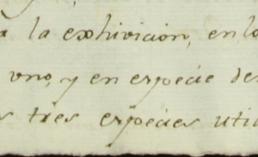 a la exhivicion, en lo
uno, y en especie de
s tres especies uti